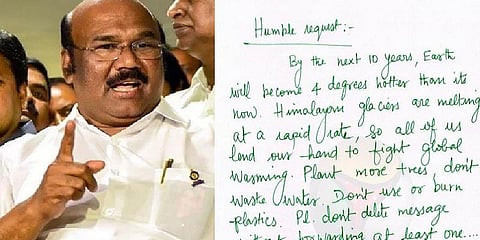 Humple request:-
By the next 10 years, Earth
will become 4 degrees hotter than its
now. Himalayan glaciers are melting
at a rapid rate, so all of us
lend our hand to fight global
warming. Plant more trees, don't
waste water. Don't use or burn
plastics. Pl. don't delete message
without forwarding at least one....